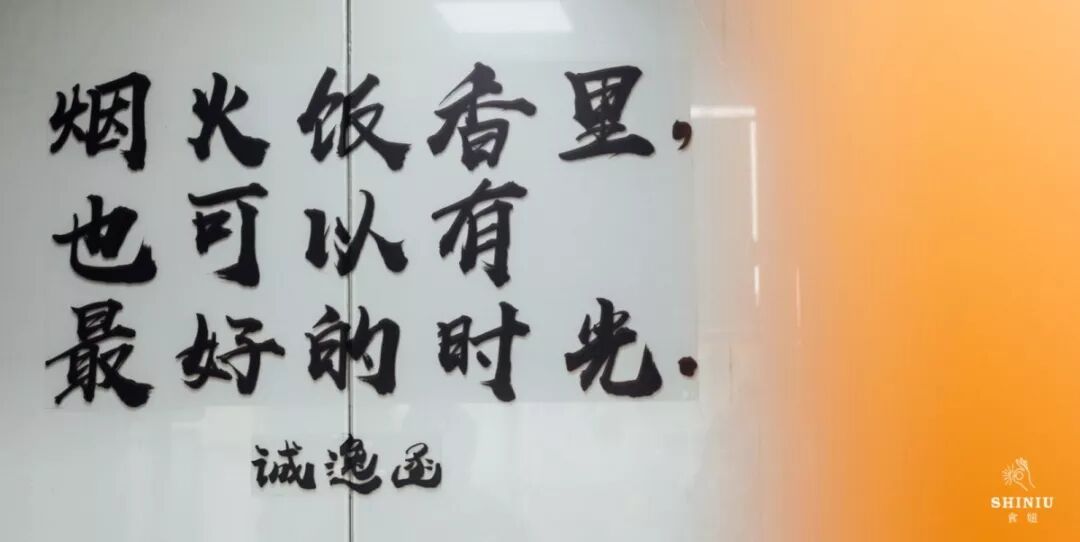 烟火饭香里,
也可以有
最好的时光.
诚逸函
SHINIU
食妞